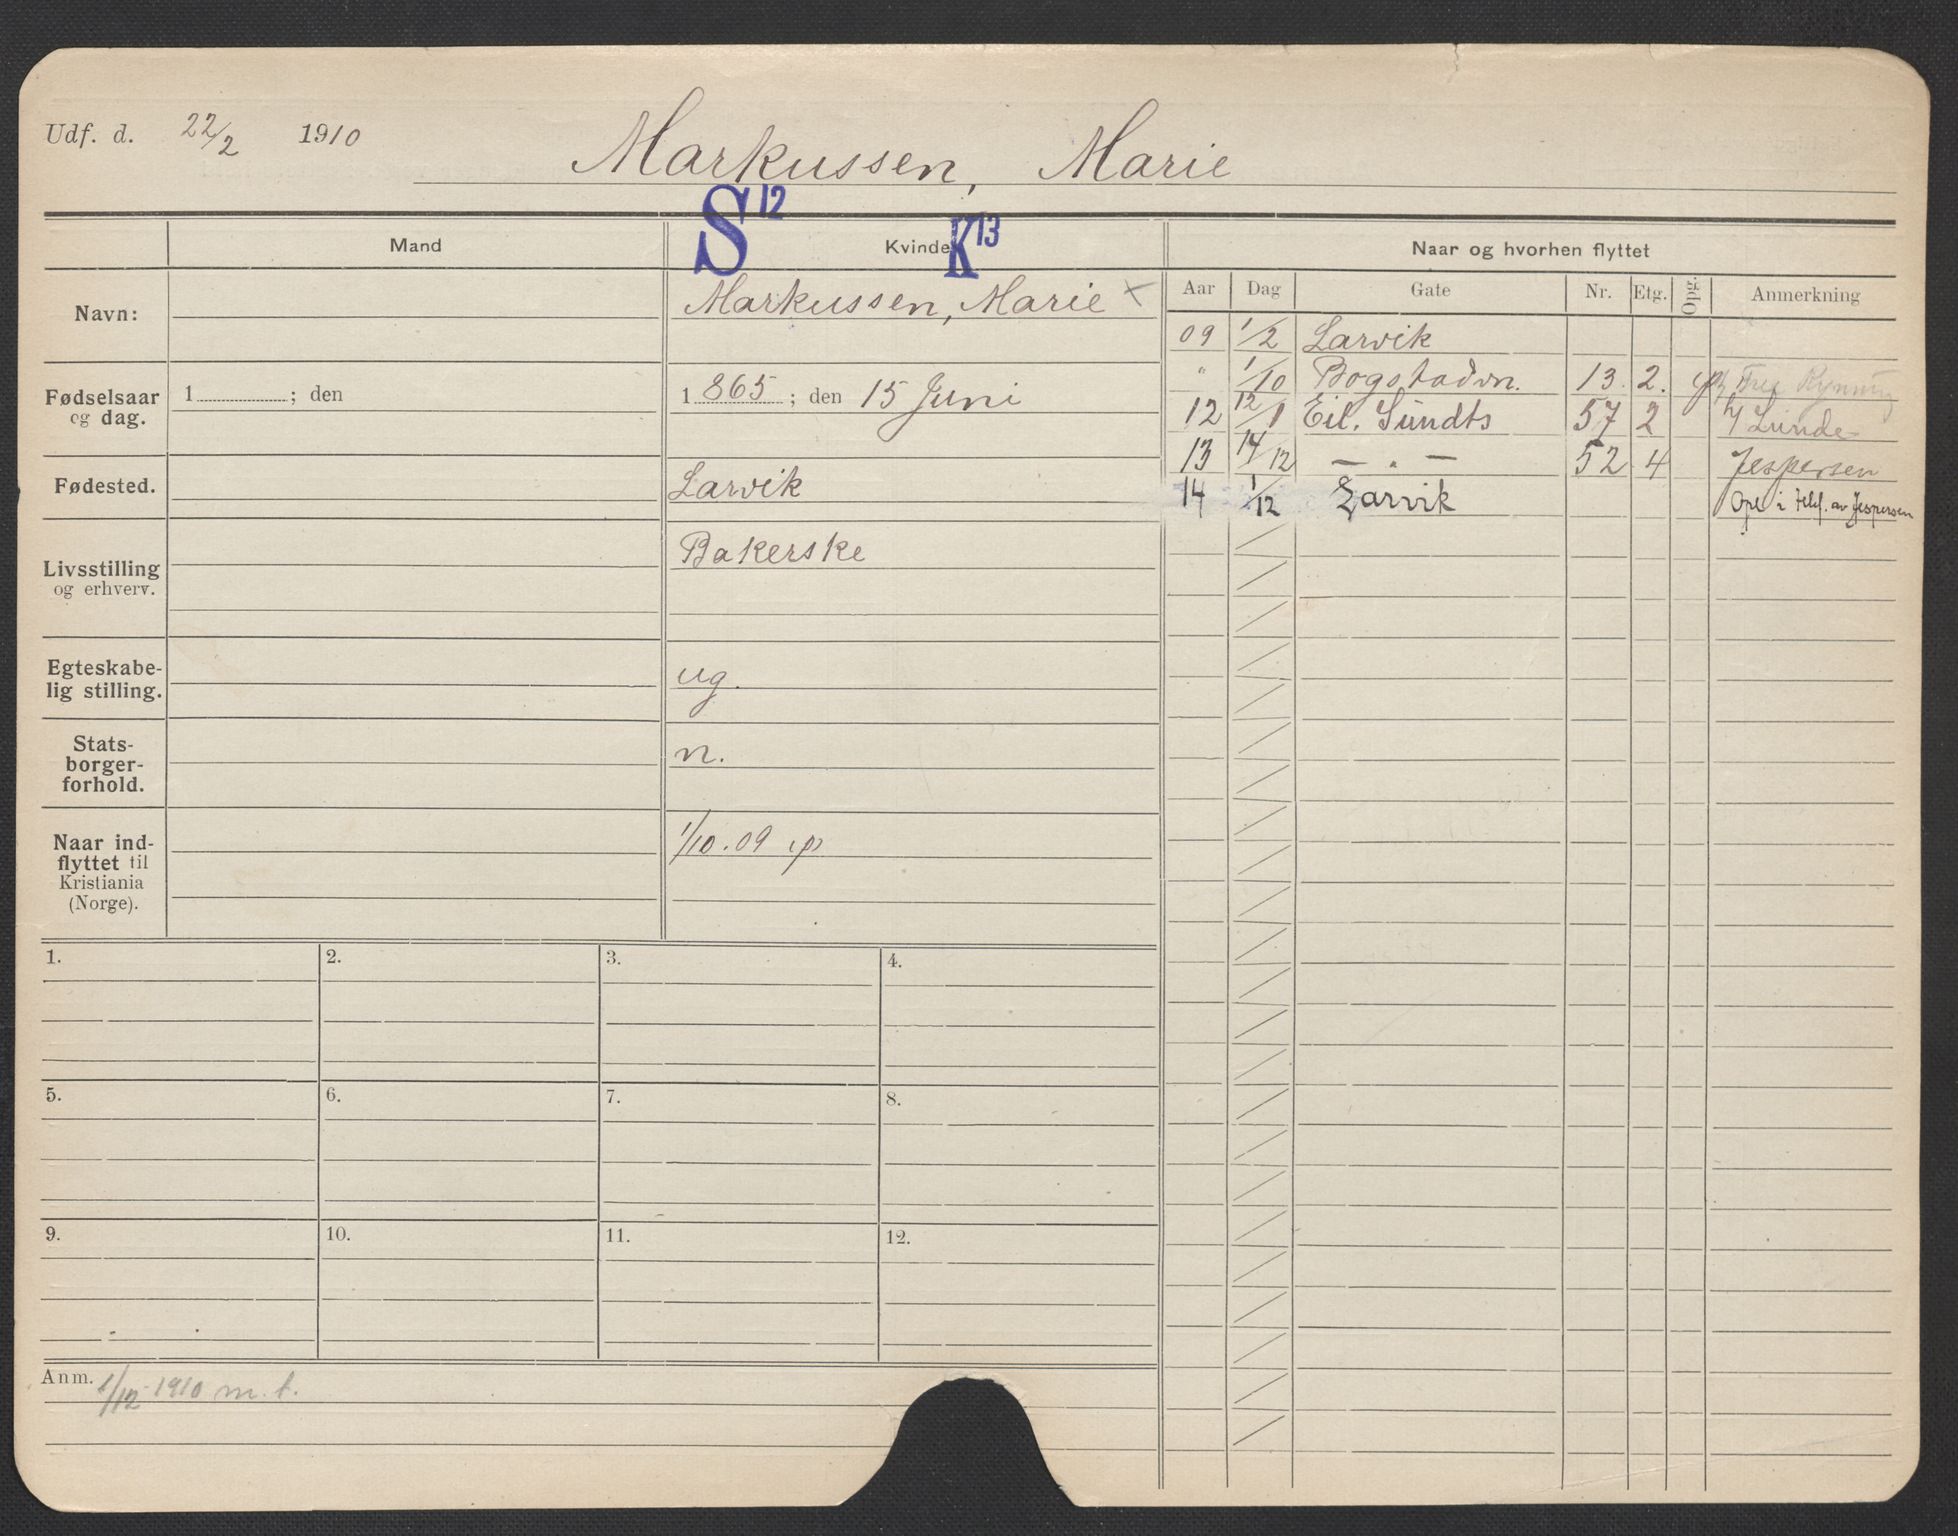 Udf. d. 22/2 1910
Markussen, Marie
S 12
K 13
Mand
Kvinde
Naar og hvorhen flyttet
Navn:
Markussen, Marie ×
Aar Dag Gate Nr. Etg. Opg. Anmerkning
09 1/2 Larvik
" 1/10 Bogstadvn. 13. 2. Rynning
12 12/1 Eil. Sundts 57 2 Lunde
13 14/12 — " — 52 4 Jespersen
14 1/12 Larvik Opl i telef. av Jespersen
Fødselsaar
og dag.
1 ; den
1 865 ; den 15 Juni
Fødested.
Larvik
Livsstilling
og erhverv.
Bakerske
Egteskabe-
lig stilling.
ug.
Stats-
borger-
forhold.
n.
Naar ind-
flyttet til
Kristiania
(Norge).
1/10. 09
1. 2. 3. 4.
5. 6. 7. 8.
9. 10. 11. 12.
Anm. 1/12 1910 m. t.